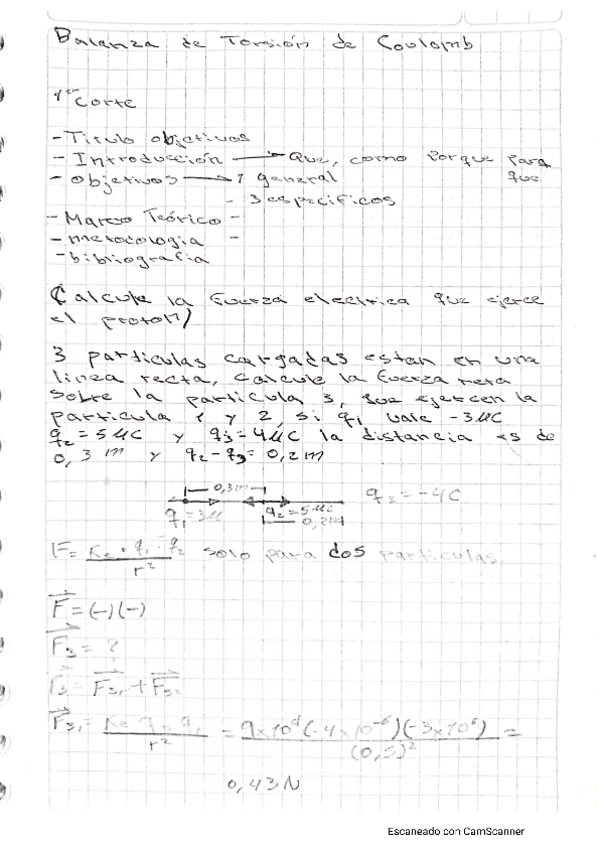 Balanza de Torsión de Coulomb
1er Corte
- Titulo objetivos
- Introducción → Que, como porque para que
- Objetivos → 1 general
- 3 especificos
- Marco Teórico -
- metodologia -
- bibliografia
Calcule la fuerza electrica que ejerce
el proton
3 particulas cargadas estan en una
linea recta, calcule la fuerza neta
sobre la particula 3, que ejercen la
particula 1 y 2, si q₁ vale -3μC
q₂ = 5μC y q₃ = 4μC la distancia es de
0,3 m y q₂-q₃ = 0,2m
0,3m
q₃ = -4C
q₁ = 3μ q₂ = 5μC
0,2m
F = Ke · q₁ · q₂ / r² solo para dos particulas.
F = (-)(-)
F₃ = ?
F₃ = F₃₁ + F₃₂
F₃₁ = Ke q₃ q₁ / r² = 9x10⁹(-4x10⁻⁶)(-3x10⁶) / (0,5)² =
0,43N
Escaneado con CamScanner